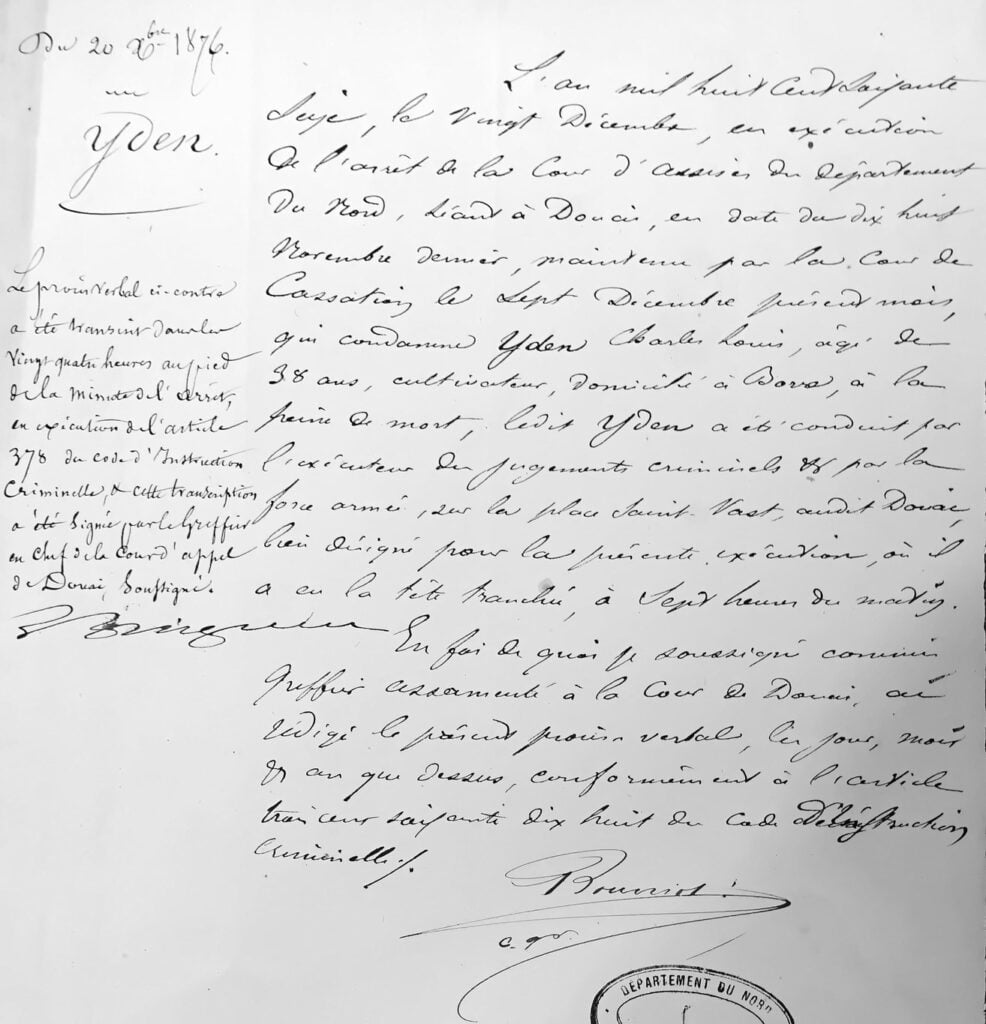 Du 20 Xbre 1876.
Yden.
Le procès verbal ci-contre
a été transcrit dans les
Vingt quatre heures au pied
de la minute de l'arrêt,
en exécution de l'article
378 du code d'Instruction
Criminelle, & cette transcription
a été signée par le Greffier
en chef de la Cour d'appel
de Douai, Soussigné.
L'an mil huit cent soixante
Seize, le vingt Décembre, en exécution
de l'arrêt de la Cour d'assises du département
du Nord, séant à Douai, en date du dix huit
Novembre dernier, maintenu par la Cour de
Cassation le Sept Décembre présent mois,
qui condamne Yden Charles Louis, âgé de
38 ans, cultivateur, domicilié à Borre, à la
peine de mort, ledit Yden a été conduit par
l'exécuteur des jugements criminels & par la
force armée, sur la place Saint-Vast, audit Douai,
lieu désigné pour la présente exécution, où il
a eu la tête tranchée, à Sept heures du matin.
En foi de quoi je soussigné commis
Greffier assermenté à la Cour de Douai, ai
rédigé le présent procès-verbal, les jour, mois
& an que dessus, conformément à l'article
trois cent soixante dix huit du Code d'Instruction
Criminelle ./.
c. gr.
DEPARTEMENT DU NORD